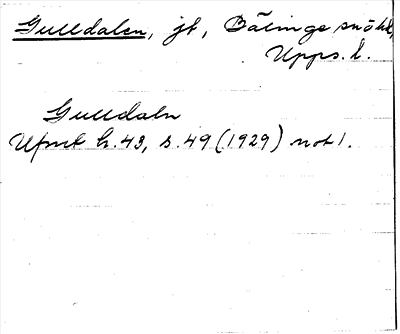 Gulldalen, jt, Bälinge snöhd,
Upps. l.
Gulldaln
Ufmt h. 43, s. 49 (1929) not 1.